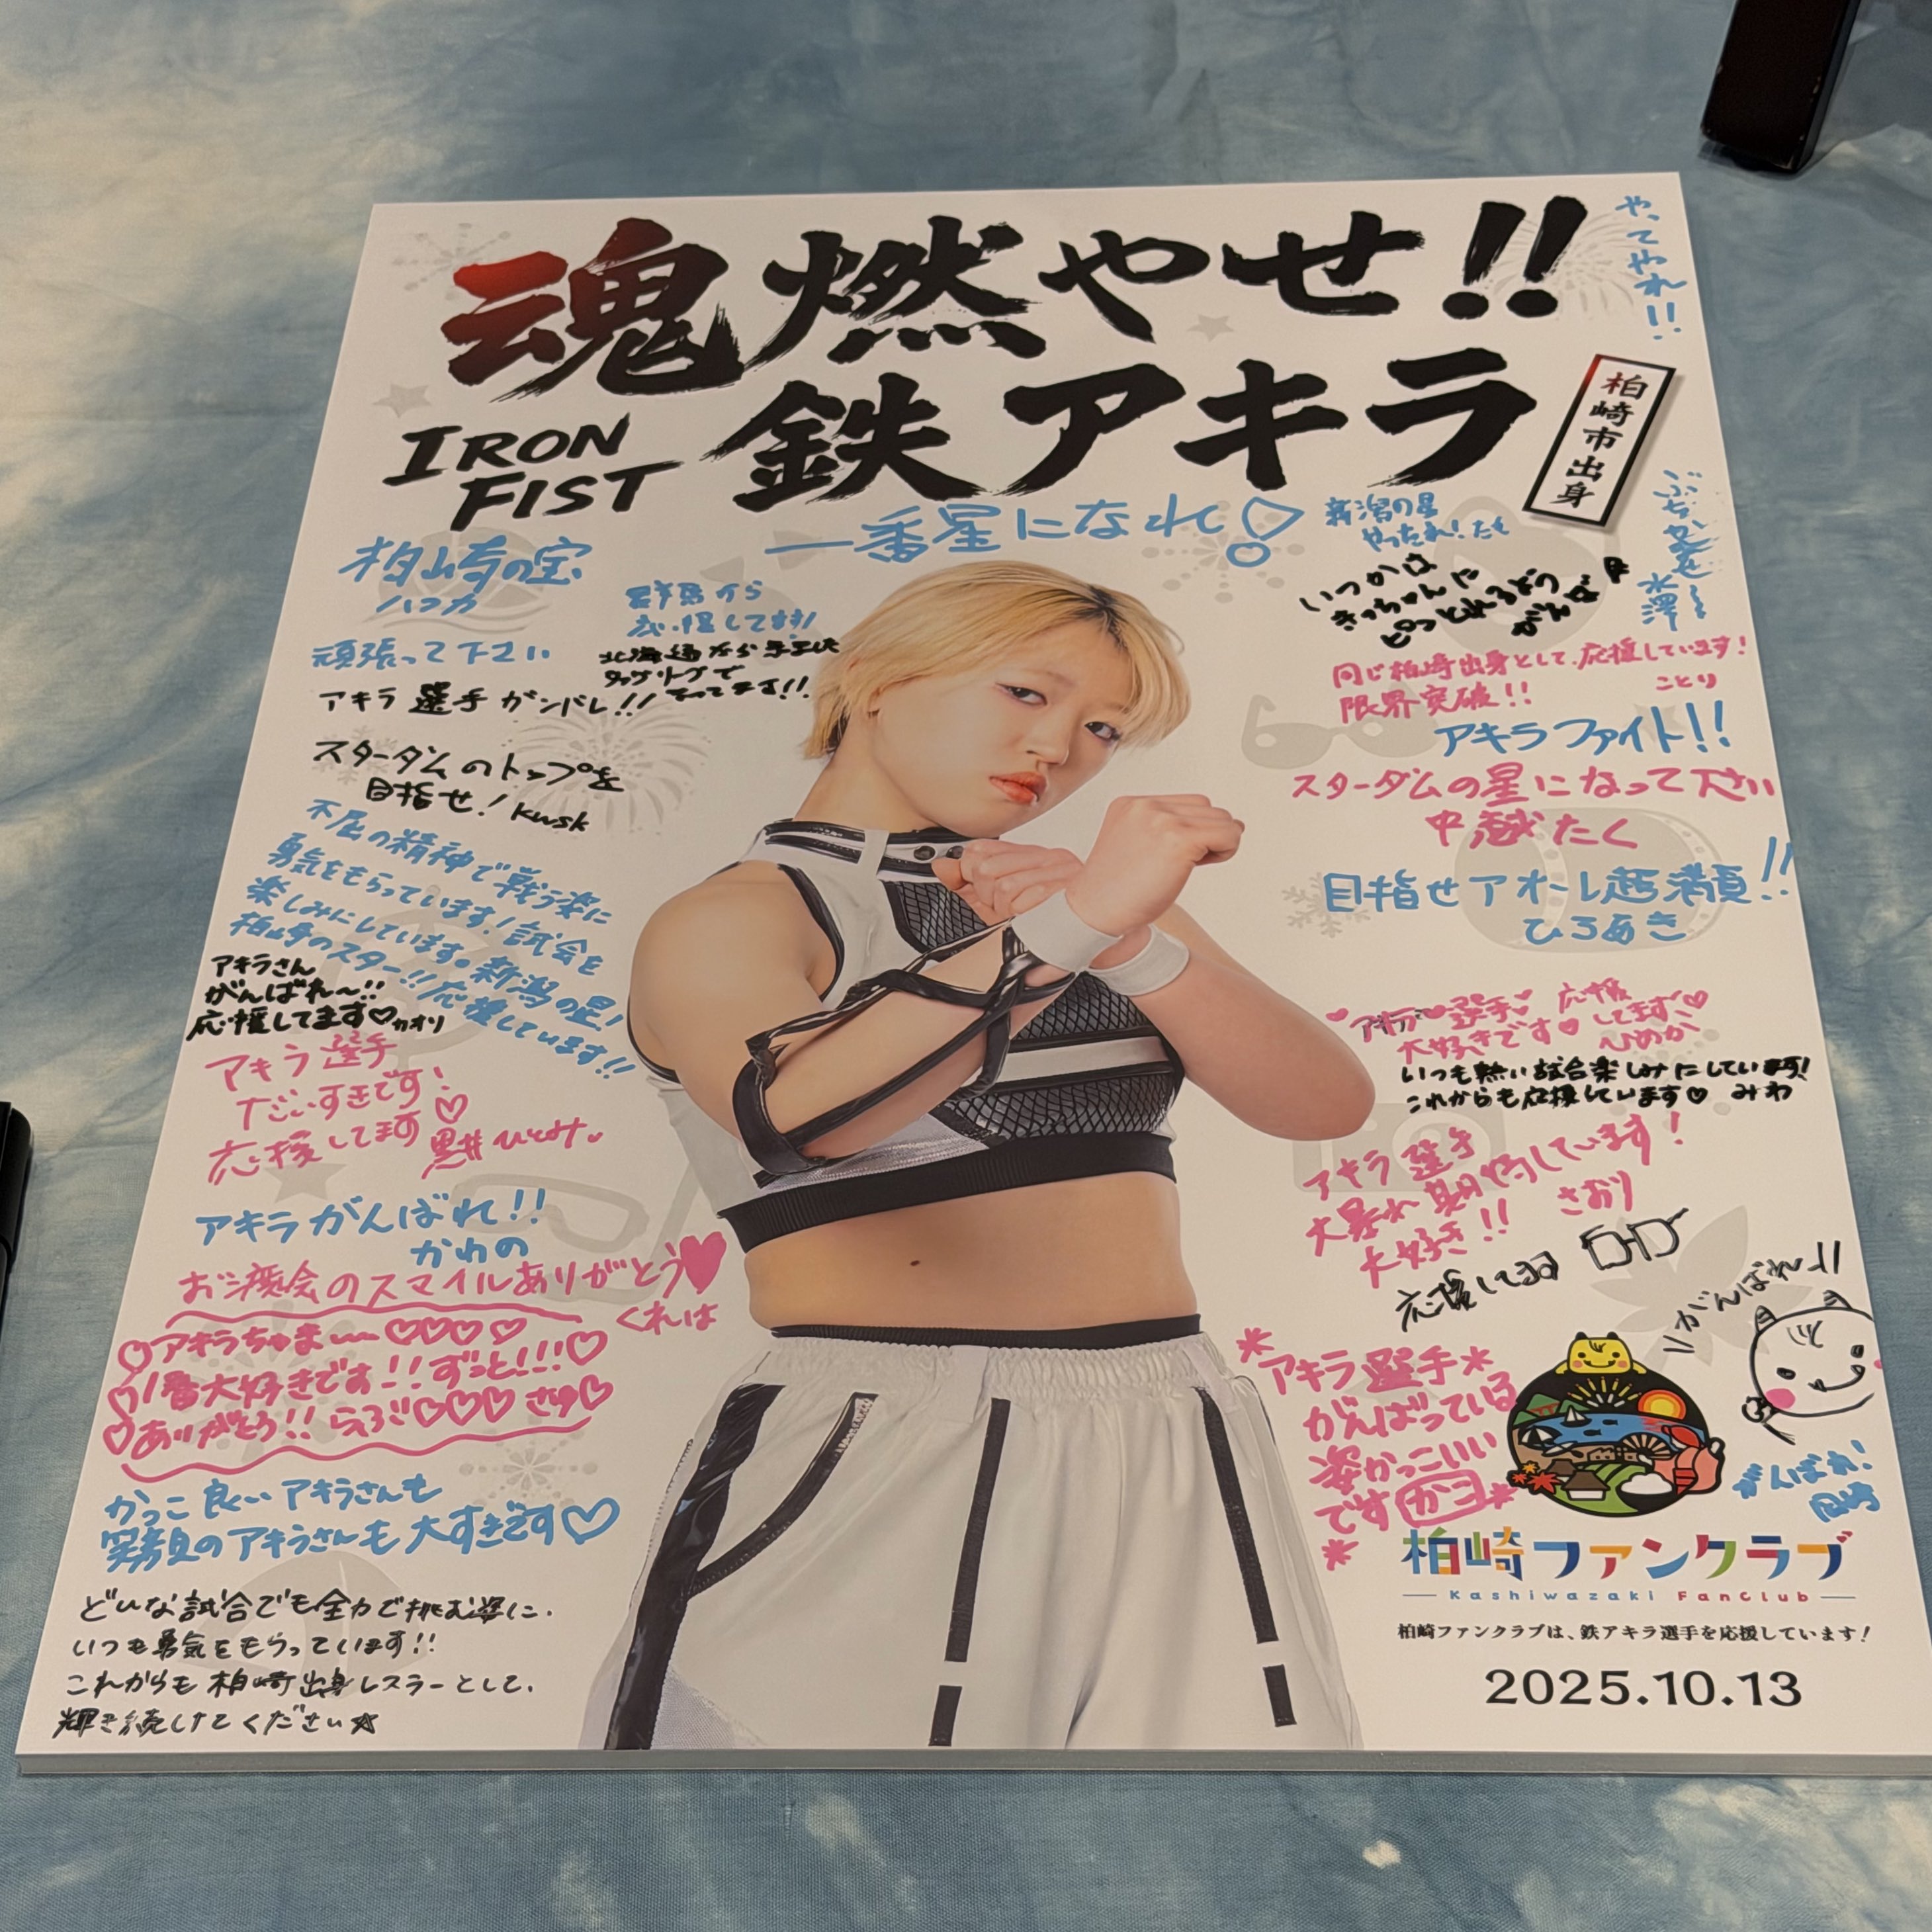 魂燃やせ!!
IRON
FIST
鉄アキラ
柏崎市出身
やってやれ!!
一番星になれ!
柏崎の宝
頑張って下さい
群馬から
応援してます!
北海道から
タッグリーグで
アキラ選手ガンバレ!!
スターダムのトップを
目指せ! kwsk
不屈の精神で戦う姿に
勇気をもらっています!試合を
楽しみにしています。新潟の星!
柏崎のスター!!応援しています!!
アキラさん
がんばれ〜!!
応援してます♡カオリ
アキラ選手
だいすきです!
応援してます♡
アキラがんばれ!!
かわの
お披露会のスマイルありがとう♥
くれは
♡アキラちゃま〜♡♡♡♡
♡1番大好きです!!ずっと!!!♡
♡ありがとう!! ♡♡♡ ♡
かっこ良いアキラさんも
笑顔のアキラさんも大すきです♡
どんな試合でも全力で挑む姿に、
いつも勇気をもらっています!!
これからも柏崎出身レスラーとして、
輝き続けてください☆
新潟の星
やったれ!たく
ぶちかませ
水澤
いつかは
同じ柏崎出身として、応援しています!
限界突破!! ことり
アキラファイト!!
スターダムの星になって下さい
中越たく
目指せアオーレ超満員!!
ひろあき
♡アキラ♡選手♡ 応援
大好きです♡ してます♡
ひめか
いつも熱い試合楽しみにしています!
これからも応援しています♡ みわ
アキラ選手
大暴れ期待しています!
大好き!! さおり
応援してるヨ
"がんばれー"
*アキラ選手*
がんばっている
姿かっこいい
です
がんばれ!
柏崎ファンクラブ
Kashiwazaki FanClub
柏崎ファンクラブは、鉄アキラ選手を応援しています!
2025.10.13